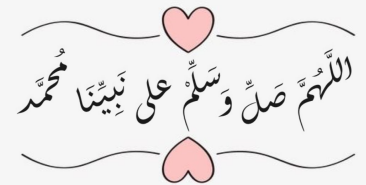 اللَّهُمَّ صَلِّ وَسَلِّمْ على نَبِيِّنَا مُحَمَّد